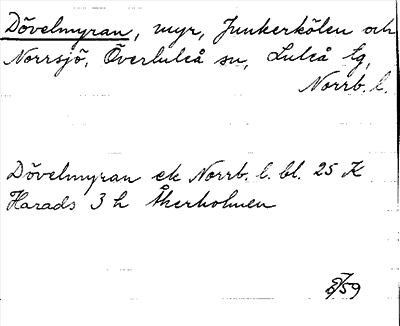 Dövelmyran, myr, Junkerkölen och
Norrsjö, Överluleå sn, Luleå tg,
Norrb. l.
Dövelmyran ek Norrb. l. bl. 25 K
Harads 3 h Åkerholmen
59